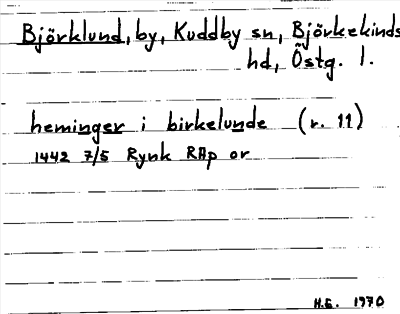 Björklund, by, Kuddby sn, Björkekinds
hd, Östg. l.
heminger i birkelunde (r. 11)
1442 7/5 Rynk RAp or
H.E. 1970